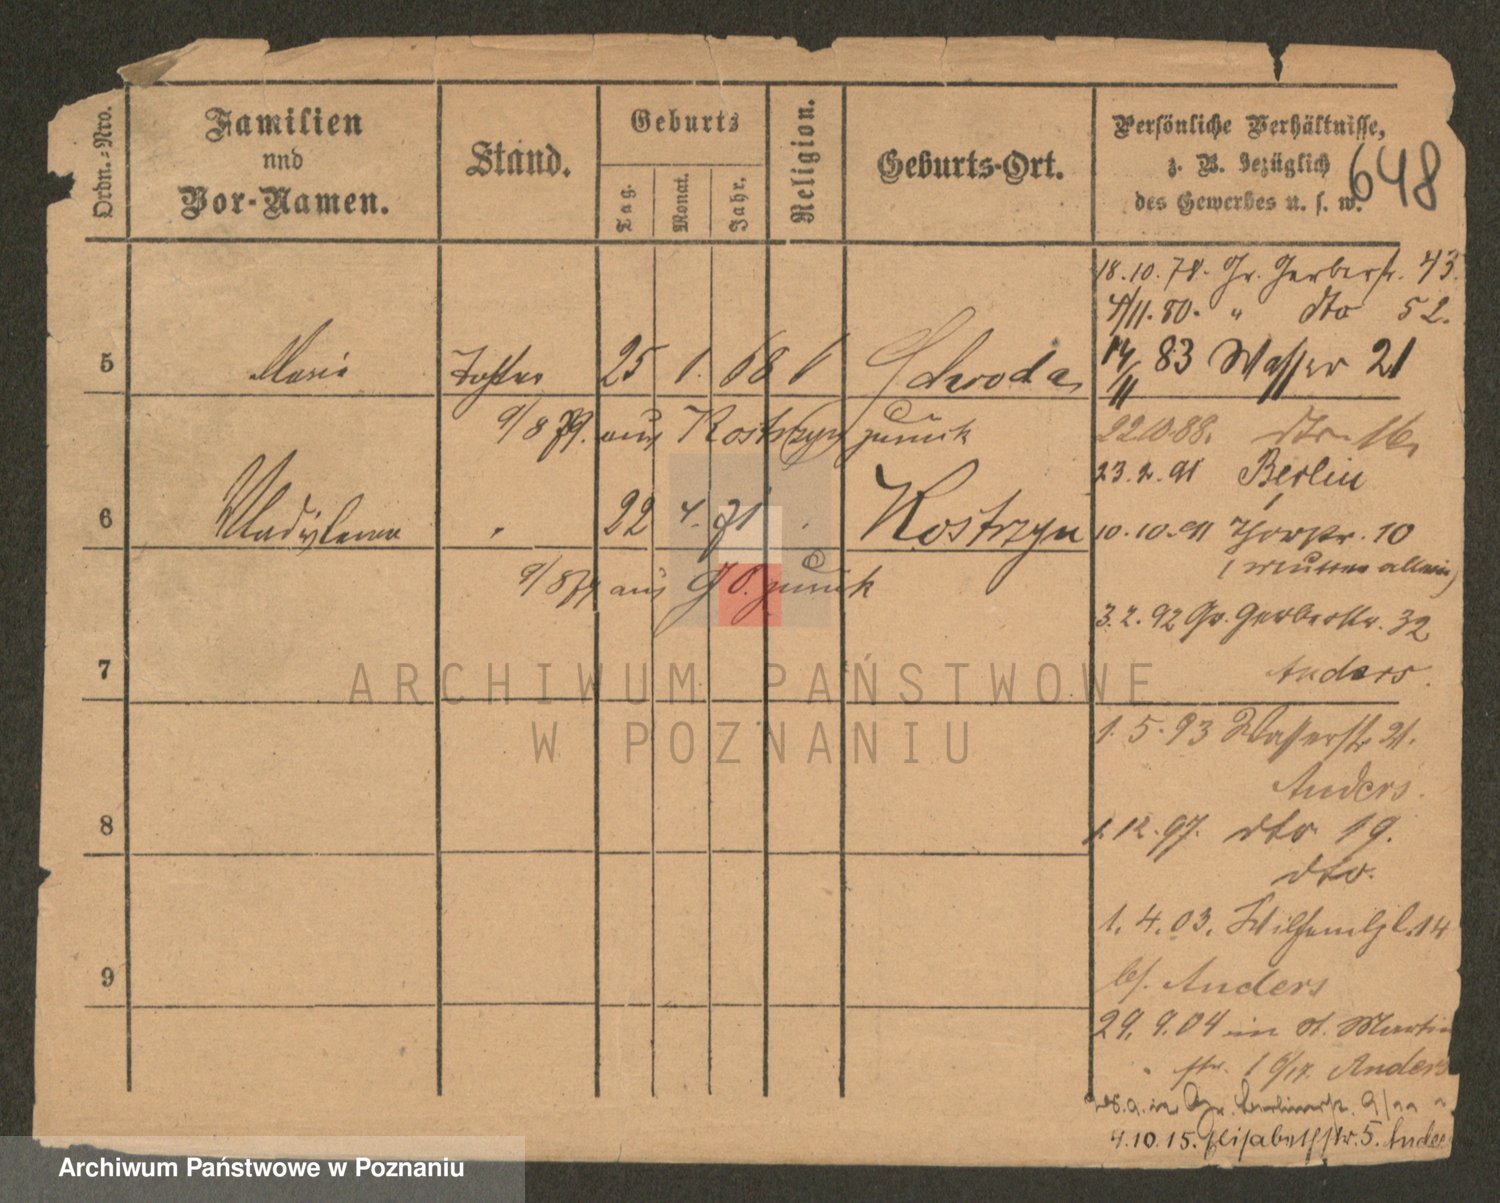 Ordn.-Nro.
Familien
und
Vor-Namen.
Stand.
Geburts
Tag.
Monat.
Jahr.
Religion.
Geburts-Ort.
Persönliche Verhältnisse,
z. B. bezüglich
des Gewerbes u. s. w.
648
18.10.78. Gr. Gerberstr. 43.
4/11.80. " dto 52.
5 Maria Tochter 25 1. 68 Schroda
14/11 83 Wasser 21
9/8 79. aus Kostrzyn zurück
22.10.88. dto 16
23.2.91 Berlin
6 Wladyslawa " 22 4. 71 " Kostrzyn
10.10.91 Thorstr. 10
(Mutter allein)
9/8 79 aus g. O. zurück
3.2.92 Gr. Gerberstr. 32
Anders.
7
1.5.93 Wasserstr. 21.
Anders.
8
1.12.97. dto 19.
dto.
1.4.03. Wilhelmpl. 14
bei Anders
9
29.9.04 in St. Martin
str. Anders
Gr. Berlinerstr.
4.10.15. Elisabethstr. 5. Ander
ARCHIWUM PAŃSTWOWE
W POZNANIU
Archiwum Państwowe w Poznaniu